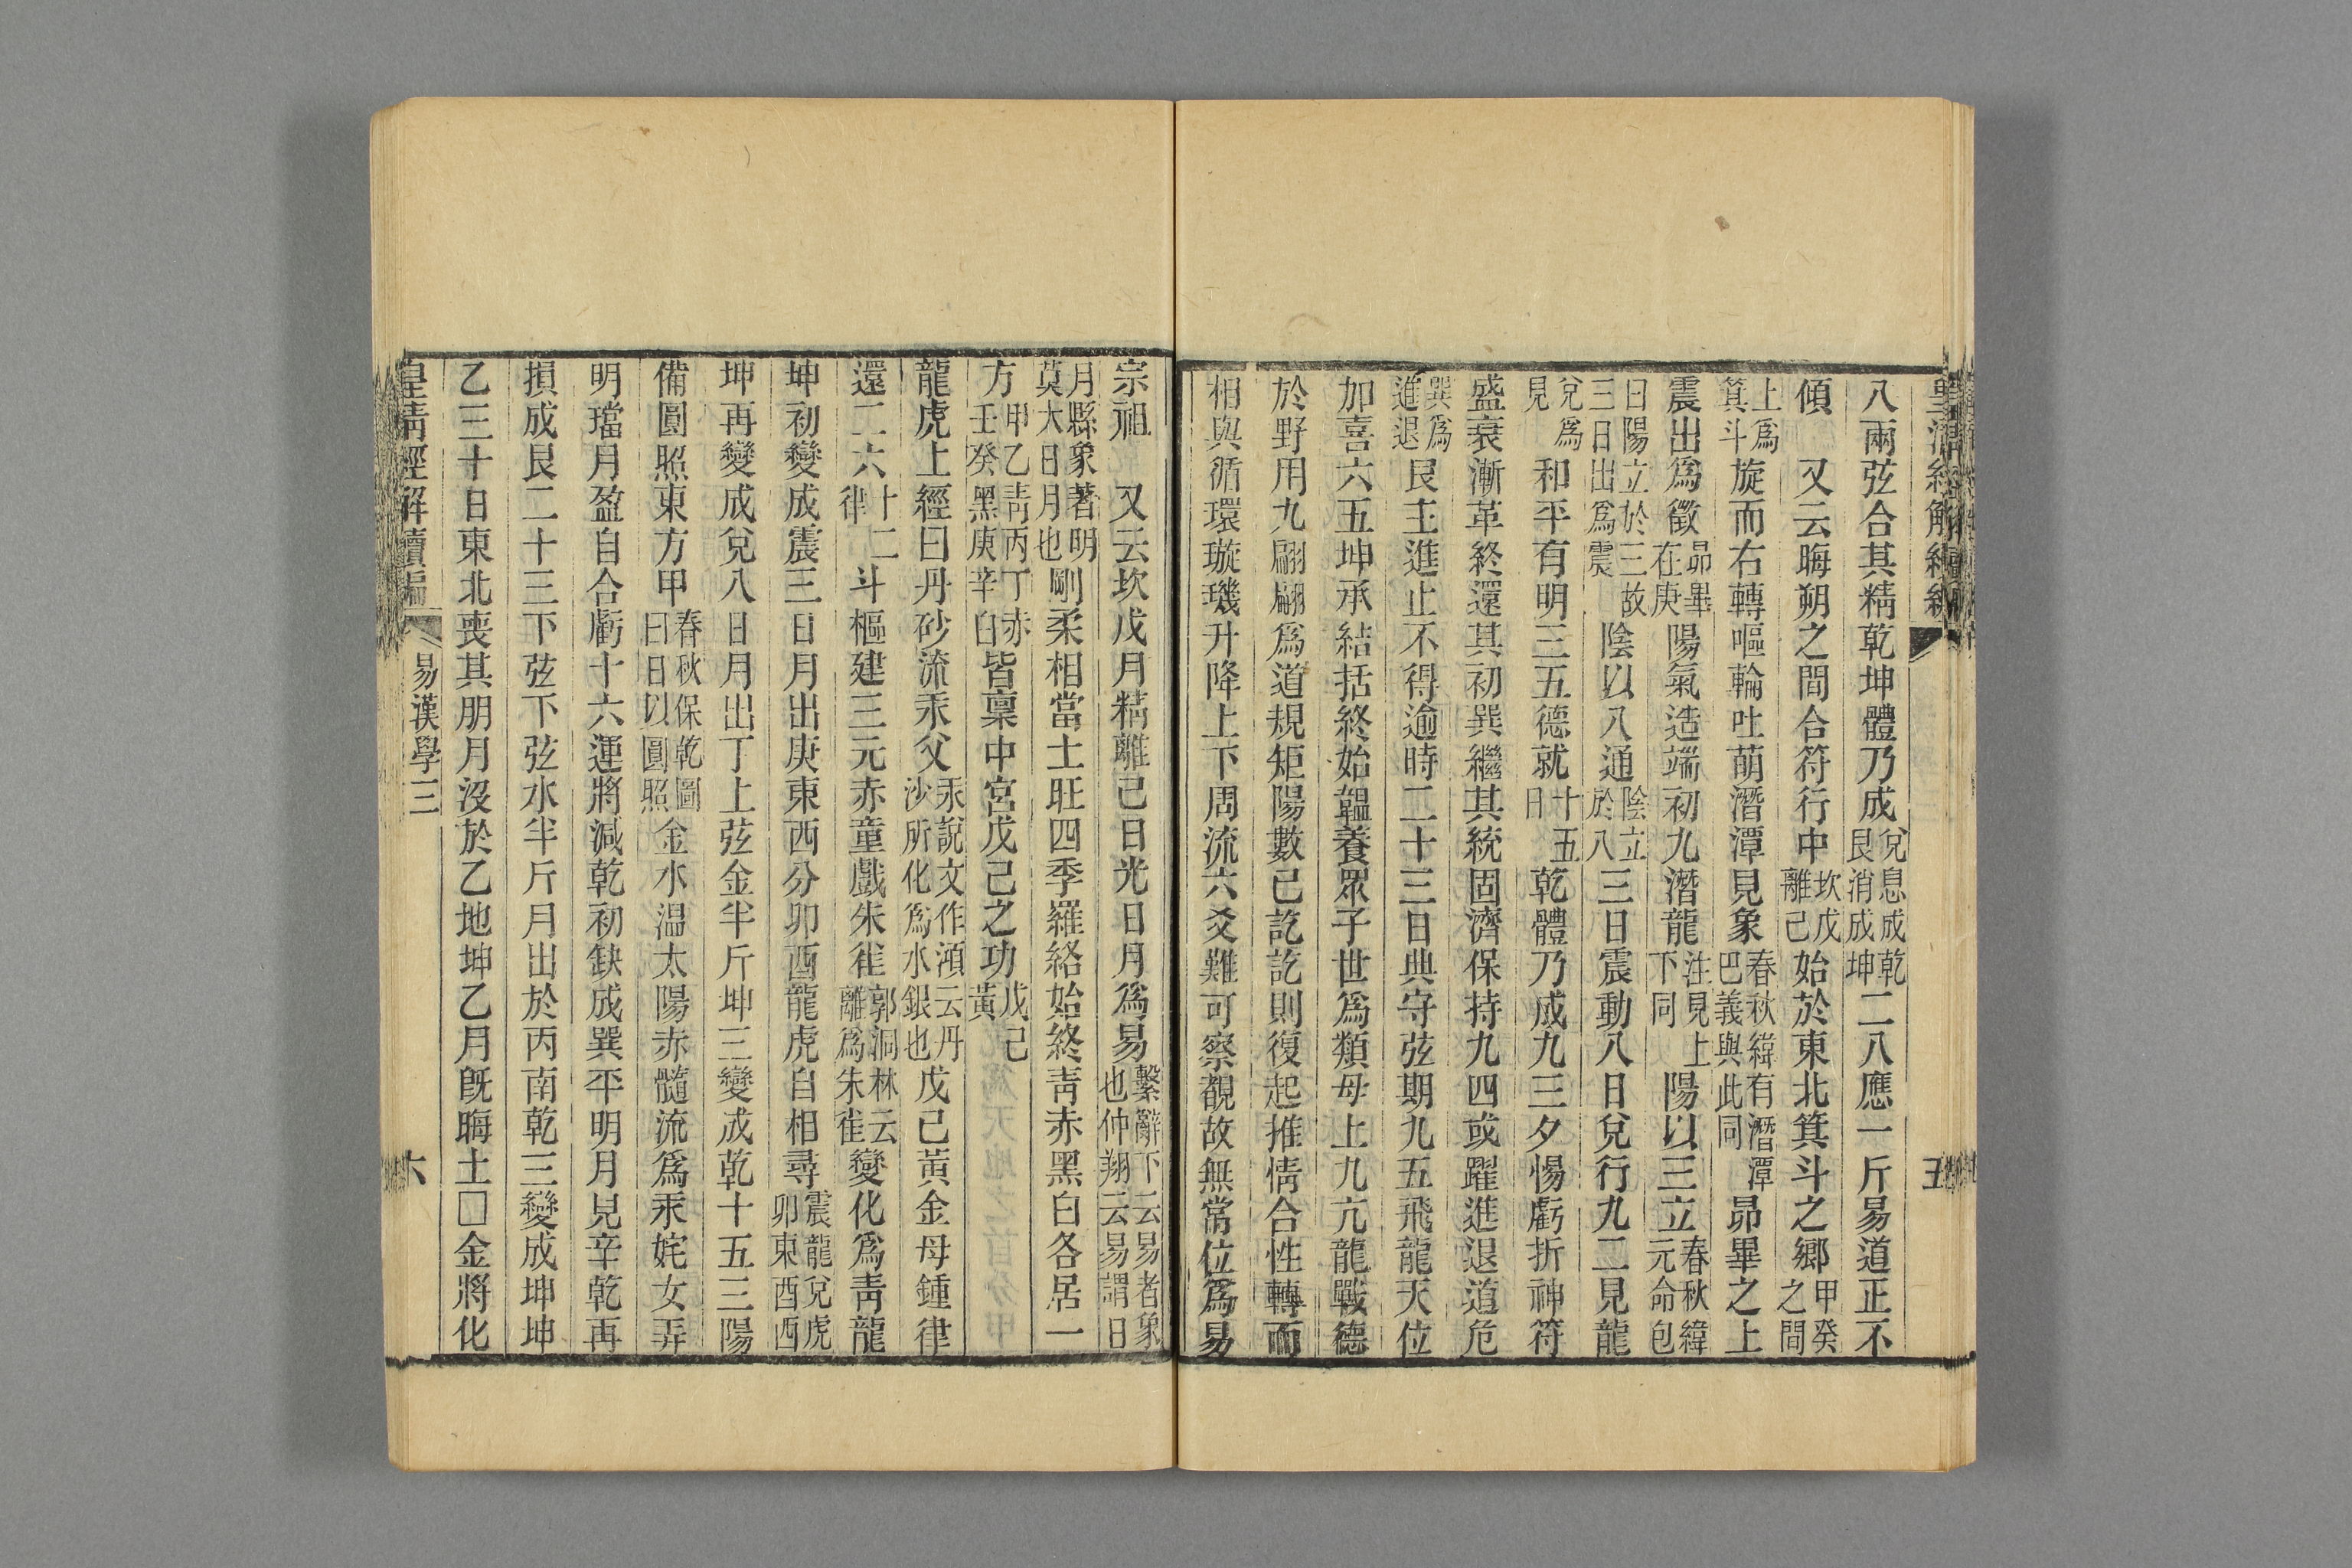 皇清經解續編 五
八兩弦合其精乾坤體乃成兌息成乾艮消成坤二八應一斤易道正不
傾　又云晦朔之間合符行中坎戊離己始於東北箕斗之鄉甲癸之間
上爲箕斗旋而右轉嘔輪吐萌潛潭見象春秋緯有潛潭巴義與此同昴畢之上
震出爲徵昴畢在庚陽氣造端初九潛龍注見上下同陽以三立春秋緯元命包
曰陽立於三故三日出爲震陰以八通陰立於八三日震動八日兌行九二見龍
兌爲見和平有明三五德就十五日乾體乃成九三夕惕虧折神符
盛衰漸革終還其初巽繼其統固濟保持九四或躍進退道危
巽爲進退艮主進止不得逾時二十三日典守弦期九五飛龍天位
加喜六五坤承結括終始韞養眾子世爲類母上九亢龍戰德
於野用九翩翩爲道規矩陽數已訖訖則復起推情合性轉而
相與循環璇璣升降上下周流六爻難可察覩故無常位爲易
宗祖　又云坎戊月精離己日光日月爲易繫辭下云易者象也仲翔云易謂日
月縣象著明莫大日月也剛柔相當土旺四季羅絡始終青赤黑白各居一
方甲乙靑丙丁赤壬癸黑庚辛白皆稟中宮戊己之功戊己黃
龍虎上經曰丹砂流汞父汞說文作澒云丹沙所化爲水銀也戊己黃金母鍾律
還二六十二律斗樞建三元赤童戲朱雀郭洞林云離爲朱雀變化爲靑龍
坤初變成震三日月出庚東西分卯酉龍虎自相尋震龍兌虎卯東酉西
坤再變成兌八日月出丁上弦金半斤坤三變成乾十五三陽
備圓照東方甲春秋保乾圖曰日以圓照金水温太陽赤髓流爲汞姹女弄
明璫月盈自合虧十六運將減乾初缺成巽平明月見辛乾再
損成艮二十三下弦下弦水半斤月出於丙南乾三變成坤坤
乙三十日東北喪其朋月沒於乙地坤乙月旣晦土□金將化
皇清經解續編 易漢學三 六